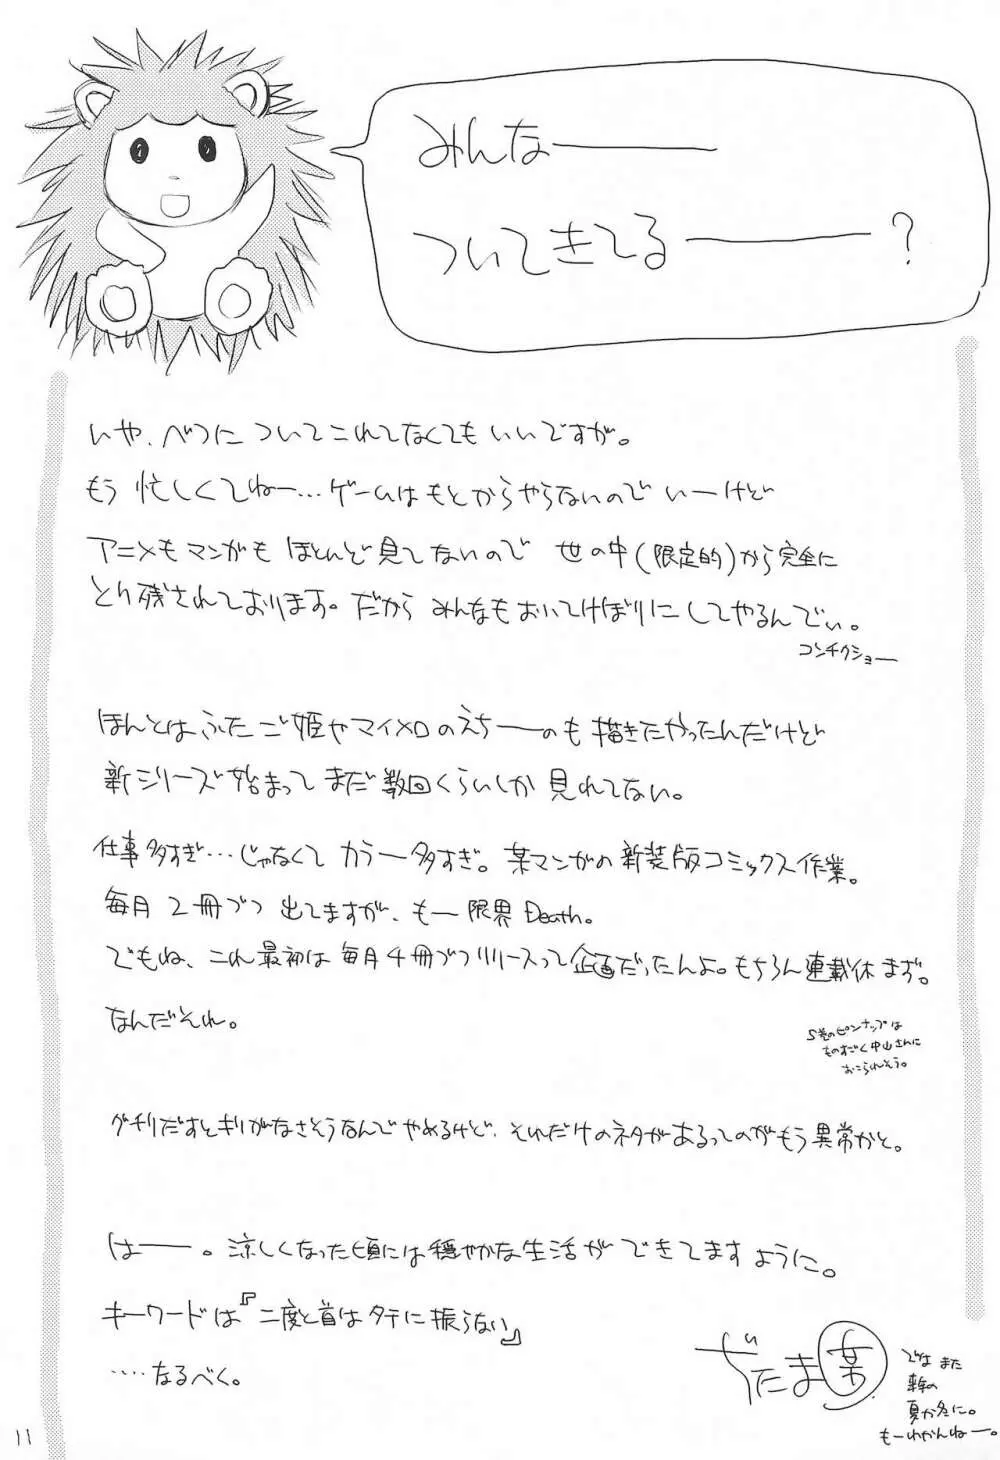 みんなーーー
ついてきてるーーー?
いや、べつについてこれてなくてもいいですが。
もう忙しくてねー…ゲームはもとからやらないのでいーけど
アニメもマンガもほとんど見てないので 世の中(限定的)から完全に
とり残されております。だからみんなもおいてけぼりにしてやるんでぃ。
コンチクショー
ほんとはふたご姫やマイメロのえちーのも描きたかったんだけど
新シリーズ始まってまだ数回くらいしか見れてない。
仕事多すぎ…じゃなくてカラー多すぎ。某マンガの新装版コミックス作業。
毎月2冊づつ出てますが、もー限界Death。
でもね、これ最初は毎月4冊づつリリースって企画だったんよ。もちろん連載休まず。
なんだそれ。
5巻のピンナップは
ものすごく中山さんに
おこられそう。
グチりだすとキリがなさそうなんでやめるけど、それだけのネタがあるってのがもう異常かと。
はーー。涼しくなった頃には穏やかな生活ができてますように。
キーワードは『二度と首はタテに振らない』
‥‥なるべく。
ぢたま某
ではまた
来年の
夏か冬に。
もーわかんねー。
11